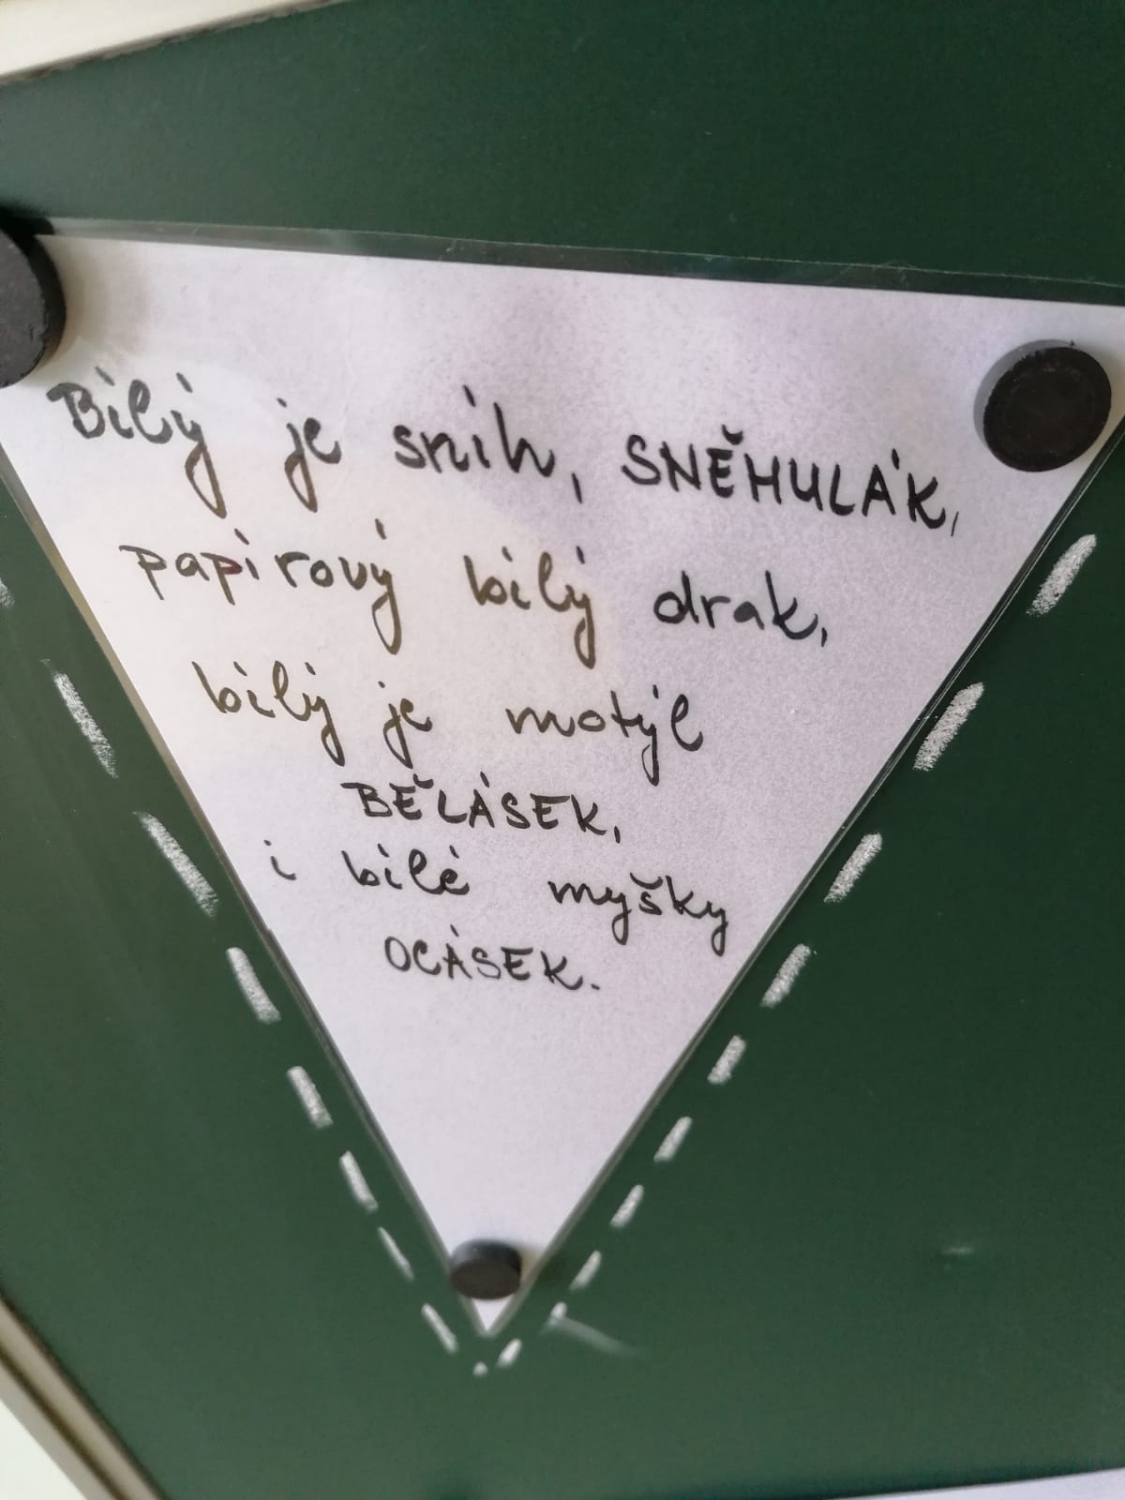 Bílý je sníh, SNĚHULÁK,
papírový bílý drak,
bílý je motýl
BĚLÁSEK,
i bílé myšky
OCÁSEK.